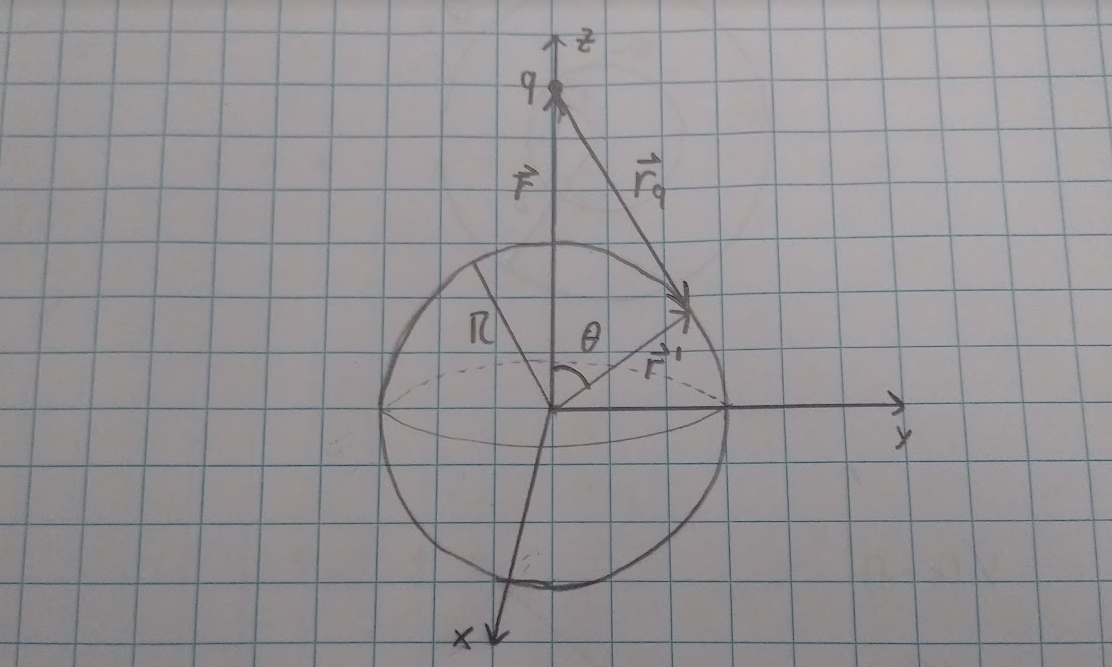 z
q
r⃗
r⃗q
R
θ
r⃗'
y
x